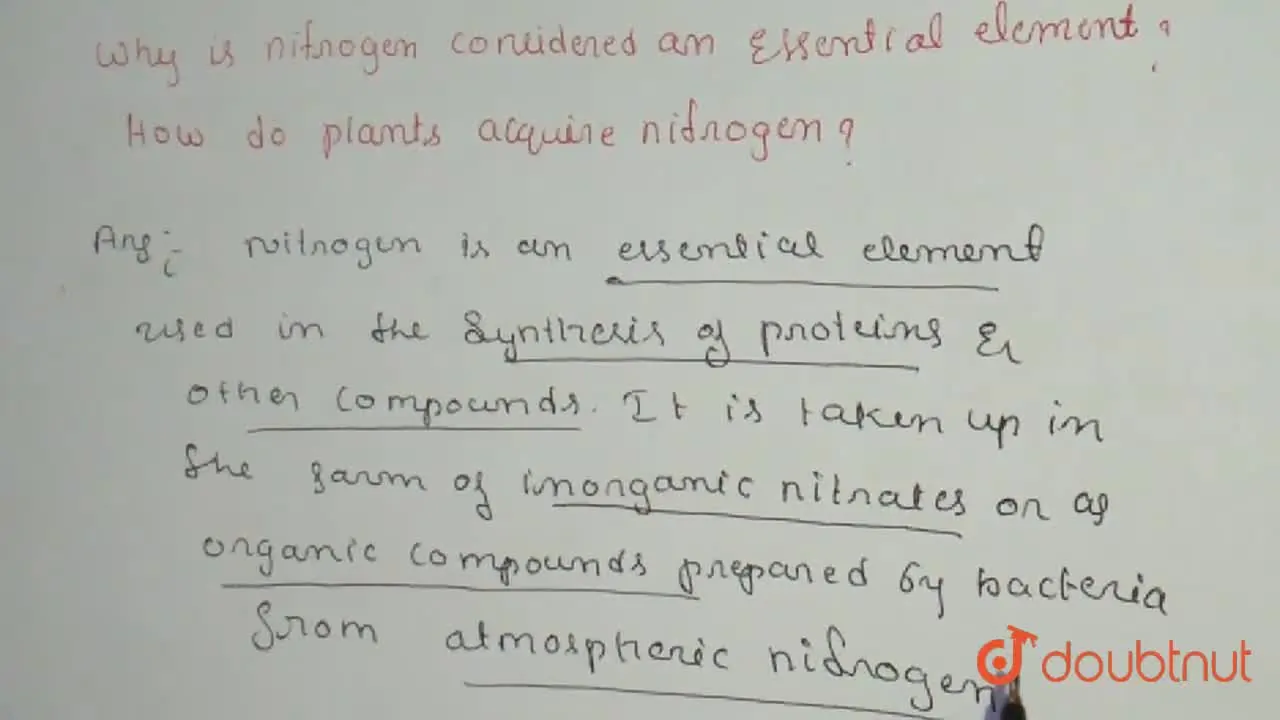 Why is nitrogen considered an Essential element?
How do plants acquire nitrogen?
Ans:- nitrogen is an essential element
used in the synthesis of proteins &
other compounds. It is taken up in
the form of inorganic nitrates or as
organic compounds prepared by bacteria
from atmospheric nitrogen
doubtnut